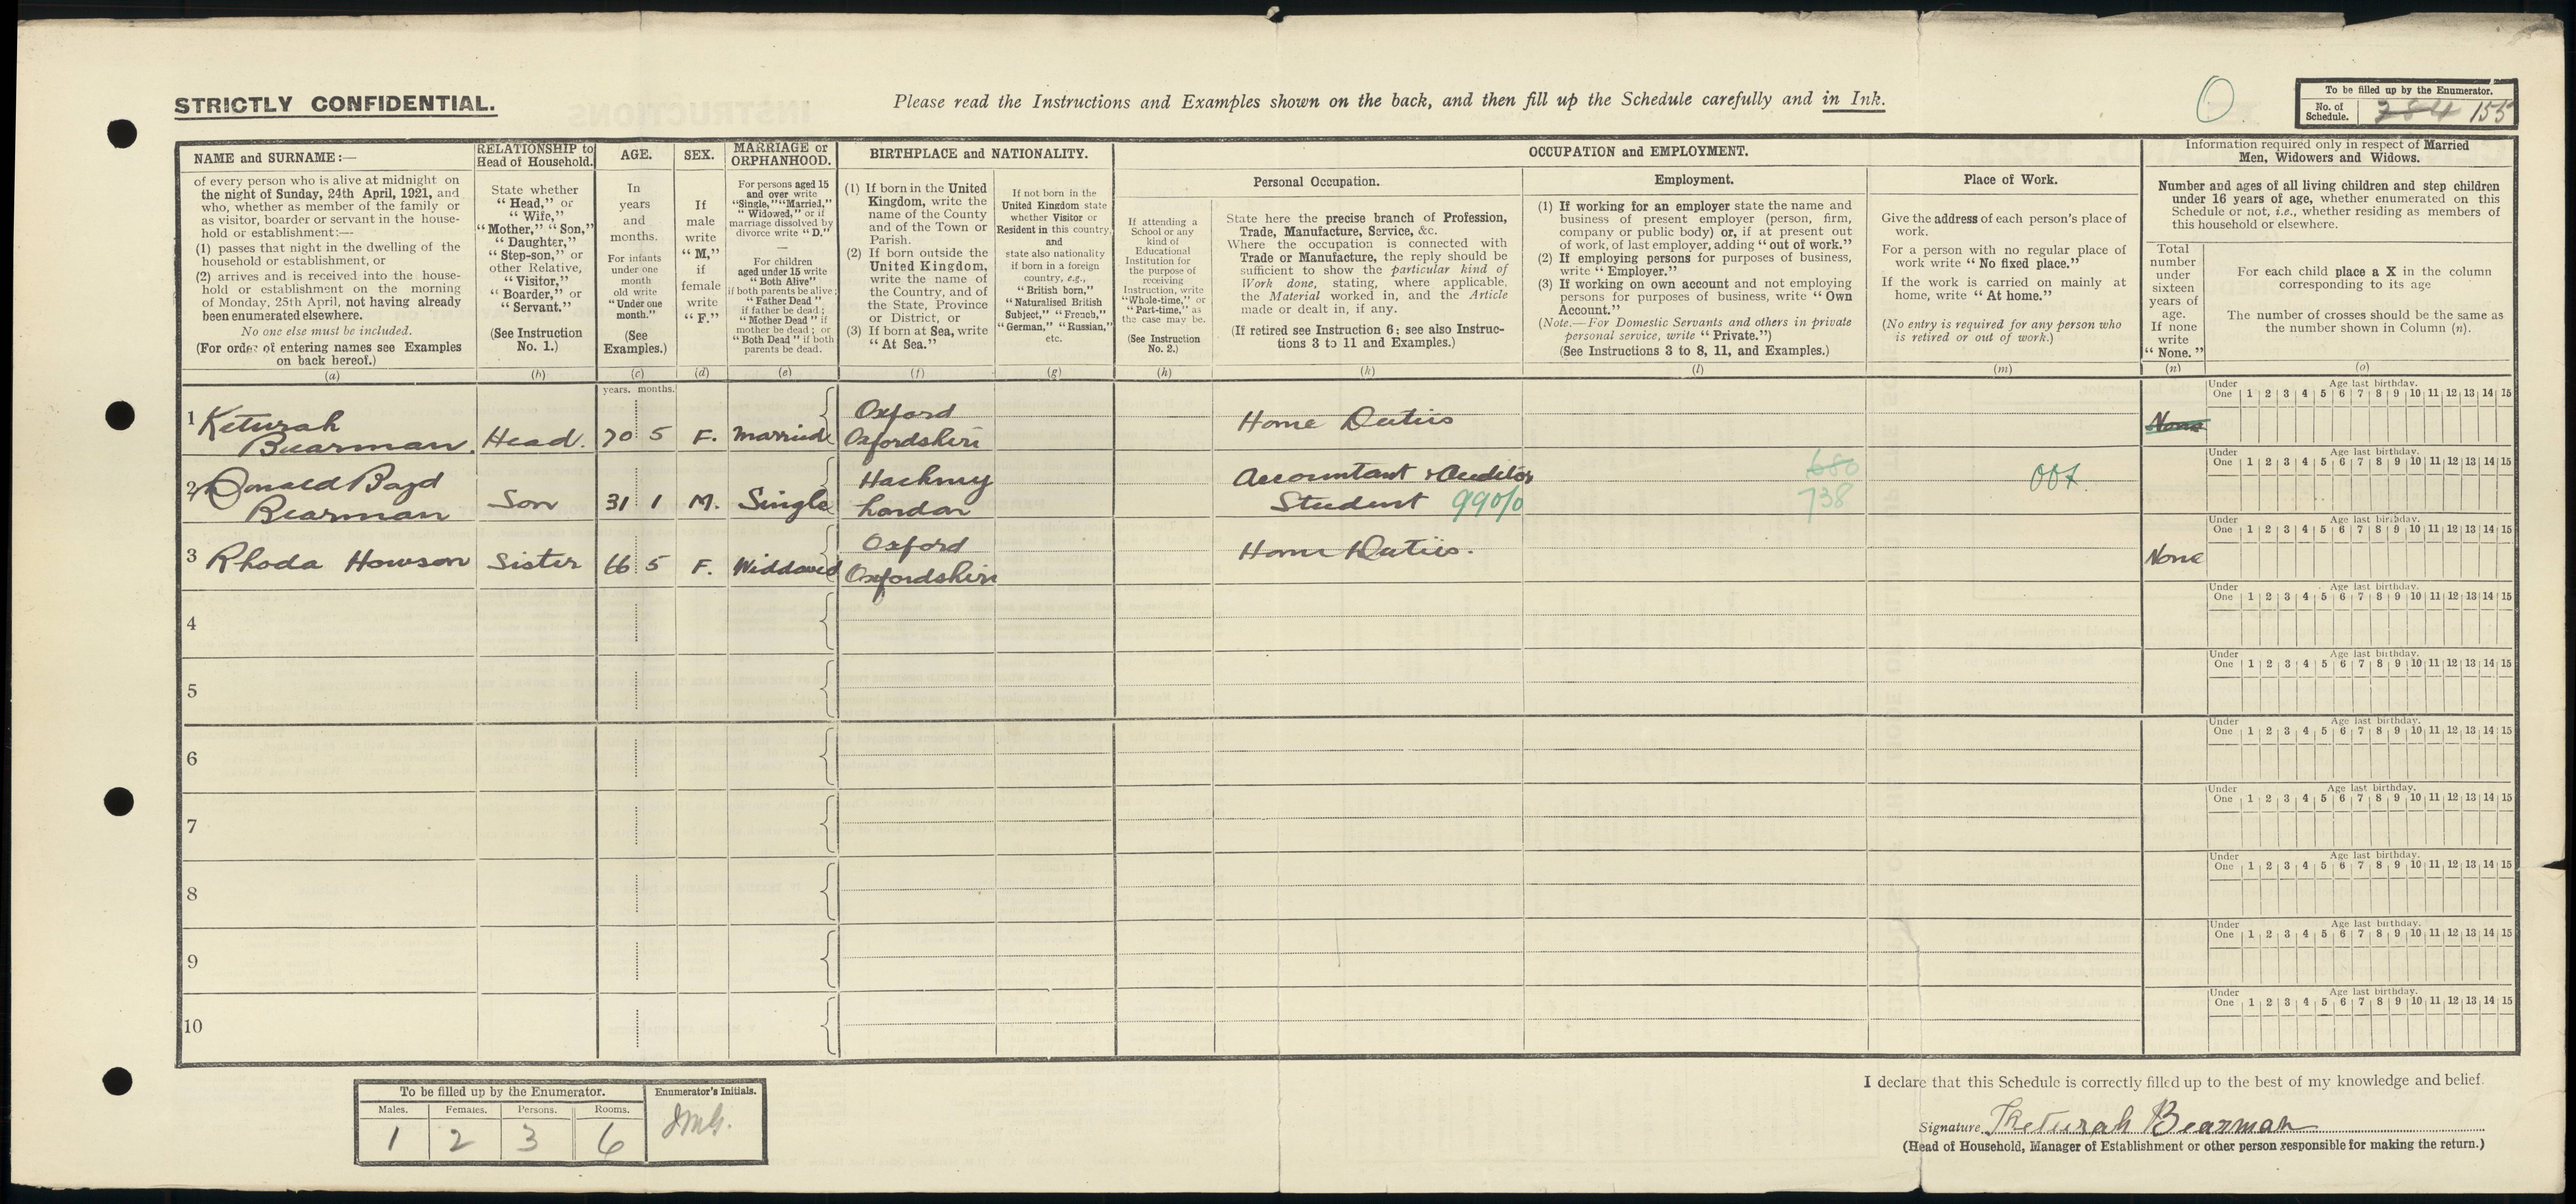 STRICTLY CONFIDENTIAL.
Please read the Instructions and Examples shown on the back, and then fill up the Schedule carefully and in Ink.
O
To be filled up by the Enumerator.
No. of Schedule. 284 155
NAME and SURNAME:—
of every person who is alive at midnight on
the night of Sunday, 24th April, 1921, and
who, whether as member of the family or
as visitor, boarder or servant in the house-
hold or establishment:—
(1) passes that night in the dwelling of the
household or establishment, or
(2) arrives and is received into the house-
hold or establishment on the morning
of Monday, 25th April, not having already
been enumerated elsewhere.
No one else must be included.
(For order of entering names see Examples
on back hereof.)
(a)
RELATIONSHIP to
Head of Household.
State whether
"Head," or
"Wife,"
"Mother," "Son,"
"Daughter,"
"Step-son," or
other Relative,
"Visitor,"
"Boarder," or
"Servant."
(See Instruction
No. 1.)
(b)
AGE.
In
years
and
months.
For infants
under one
month
old write
"Under one
month."
(See
Examples.)
(c)
SEX.
If
male
write
"M,"
if
female
write
"F."
(d)
MARRIAGE or
ORPHANHOOD.
For persons aged 15
and over write
"Single," "Married,"
"Widowed," or if
marriage dissolved by
divorce write "D."
—
For children
aged under 15 write
"Both Alive"
if both parents be alive;
"Father Dead"
if father be dead;
"Mother Dead" if
mother be dead; or
"Both Dead" if both
parents be dead.
(e)
BIRTHPLACE and NATIONALITY.
(1) If born in the United
Kingdom, write the
name of the County
and of the Town or
Parish.
(2) If born outside the
United Kingdom,
write the name of
the Country, and of
the State, Province
or District, or
(3) If born at Sea, write
"At Sea."
(f)
If not born in the
United Kingdom state
whether Visitor or
Resident in this country,
and
state also nationality
if born in a foreign
country, e.g.,
"British born,"
"Naturalised British
Subject," "French,"
"German," "Russian,"
etc.
(g)
OCCUPATION and EMPLOYMENT.
If attending a
School or any
kind of
Educational
Institution for
the purpose of
receiving
Instruction, write
"Whole-time," or
"Part-time," as
the case may be.
(See Instruction
No. 2.)
(h)
Personal Occupation.
State here the precise branch of Profession,
Trade, Manufacture, Service, &c.
Where the occupation is connected with
Trade or Manufacture, the reply should be
sufficient to show the particular kind of
Work done, stating, where applicable,
the Material worked in, and the Article
made or dealt in, if any.
(If retired see Instruction 6; see also Instruc-
tions 3 to 11 and Examples.)
(k)
Employment.
(1) If working for an employer state the name and
business of present employer (person, firm,
company or public body) or, if at present out
of work, of last employer, adding "out of work."
(2) If employing persons for purposes of business,
write "Employer."
(3) If working on own account and not employing
persons for purposes of business, write "Own
Account."
(Note.—For Domestic Servants and others in private
personal service, write "Private.")
(See Instructions 3 to 8, 11, and Examples.)
(l)
Place of Work.
Give the address of each person's place of
work.
For a person with no regular place of
work write "No fixed place."
If the work is carried on mainly at
home, write "At home."
(No entry is required for any person who
is retired or out of work.)
(m)
Information required only in respect of Married
Men, Widowers and Widows.
Number and ages of all living children and step children
under 16 years of age, whether enumerated on this
Schedule or not, i.e., whether residing as members of
this household or elsewhere.
Total
number
under
sixteen
years of
age.
If none
write
"None."
(n)
For each child place a X in the column
corresponding to its age
The number of crosses should be the same as
the number shown in Column (n).
(o)
years. months.
1 Keturah Bearman. Head. 70 5 F. Married Oxford Oxfordshire Home Duties None
Under One 1 2 3 4 5 6 7 8 9 10 11 12 13 14 15
Age last birthday.
2 Donald Boyd Bearman Son 31 1 M. Single Hackney London Accountant & Auditor Student 990/0 680 738 007
Under One 1 2 3 4 5 6 7 8 9 10 11 12 13 14 15
Age last birthday.
3 Rhoda Howson Sister 66 5 F. Widdowed Oxford Oxfordshire Home Duties. None
Under One 1 2 3 4 5 6 7 8 9 10 11 12 13 14 15
Age last birthday.
4
Under One 1 2 3 4 5 6 7 8 9 10 11 12 13 14 15
Age last birthday.
5
Under One 1 2 3 4 5 6 7 8 9 10 11 12 13 14 15
Age last birthday.
6
Under One 1 2 3 4 5 6 7 8 9 10 11 12 13 14 15
Age last birthday.
7
Under One 1 2 3 4 5 6 7 8 9 10 11 12 13 14 15
Age last birthday.
8
Under One 1 2 3 4 5 6 7 8 9 10 11 12 13 14 15
Age last birthday.
9
Under One 1 2 3 4 5 6 7 8 9 10 11 12 13 14 15
Age last birthday.
10
Under One 1 2 3 4 5 6 7 8 9 10 11 12 13 14 15
Age last birthday.
To be filled up by the Enumerator.
Males. Females. Persons. Rooms.
1 2 3 6
Enumerator's Initials.
I declare that this Schedule is correctly filled up to the best of my knowledge and belief.
Signature Keturah Bearman
(Head of Household, Manager of Establishment or other person responsible for making the return.)